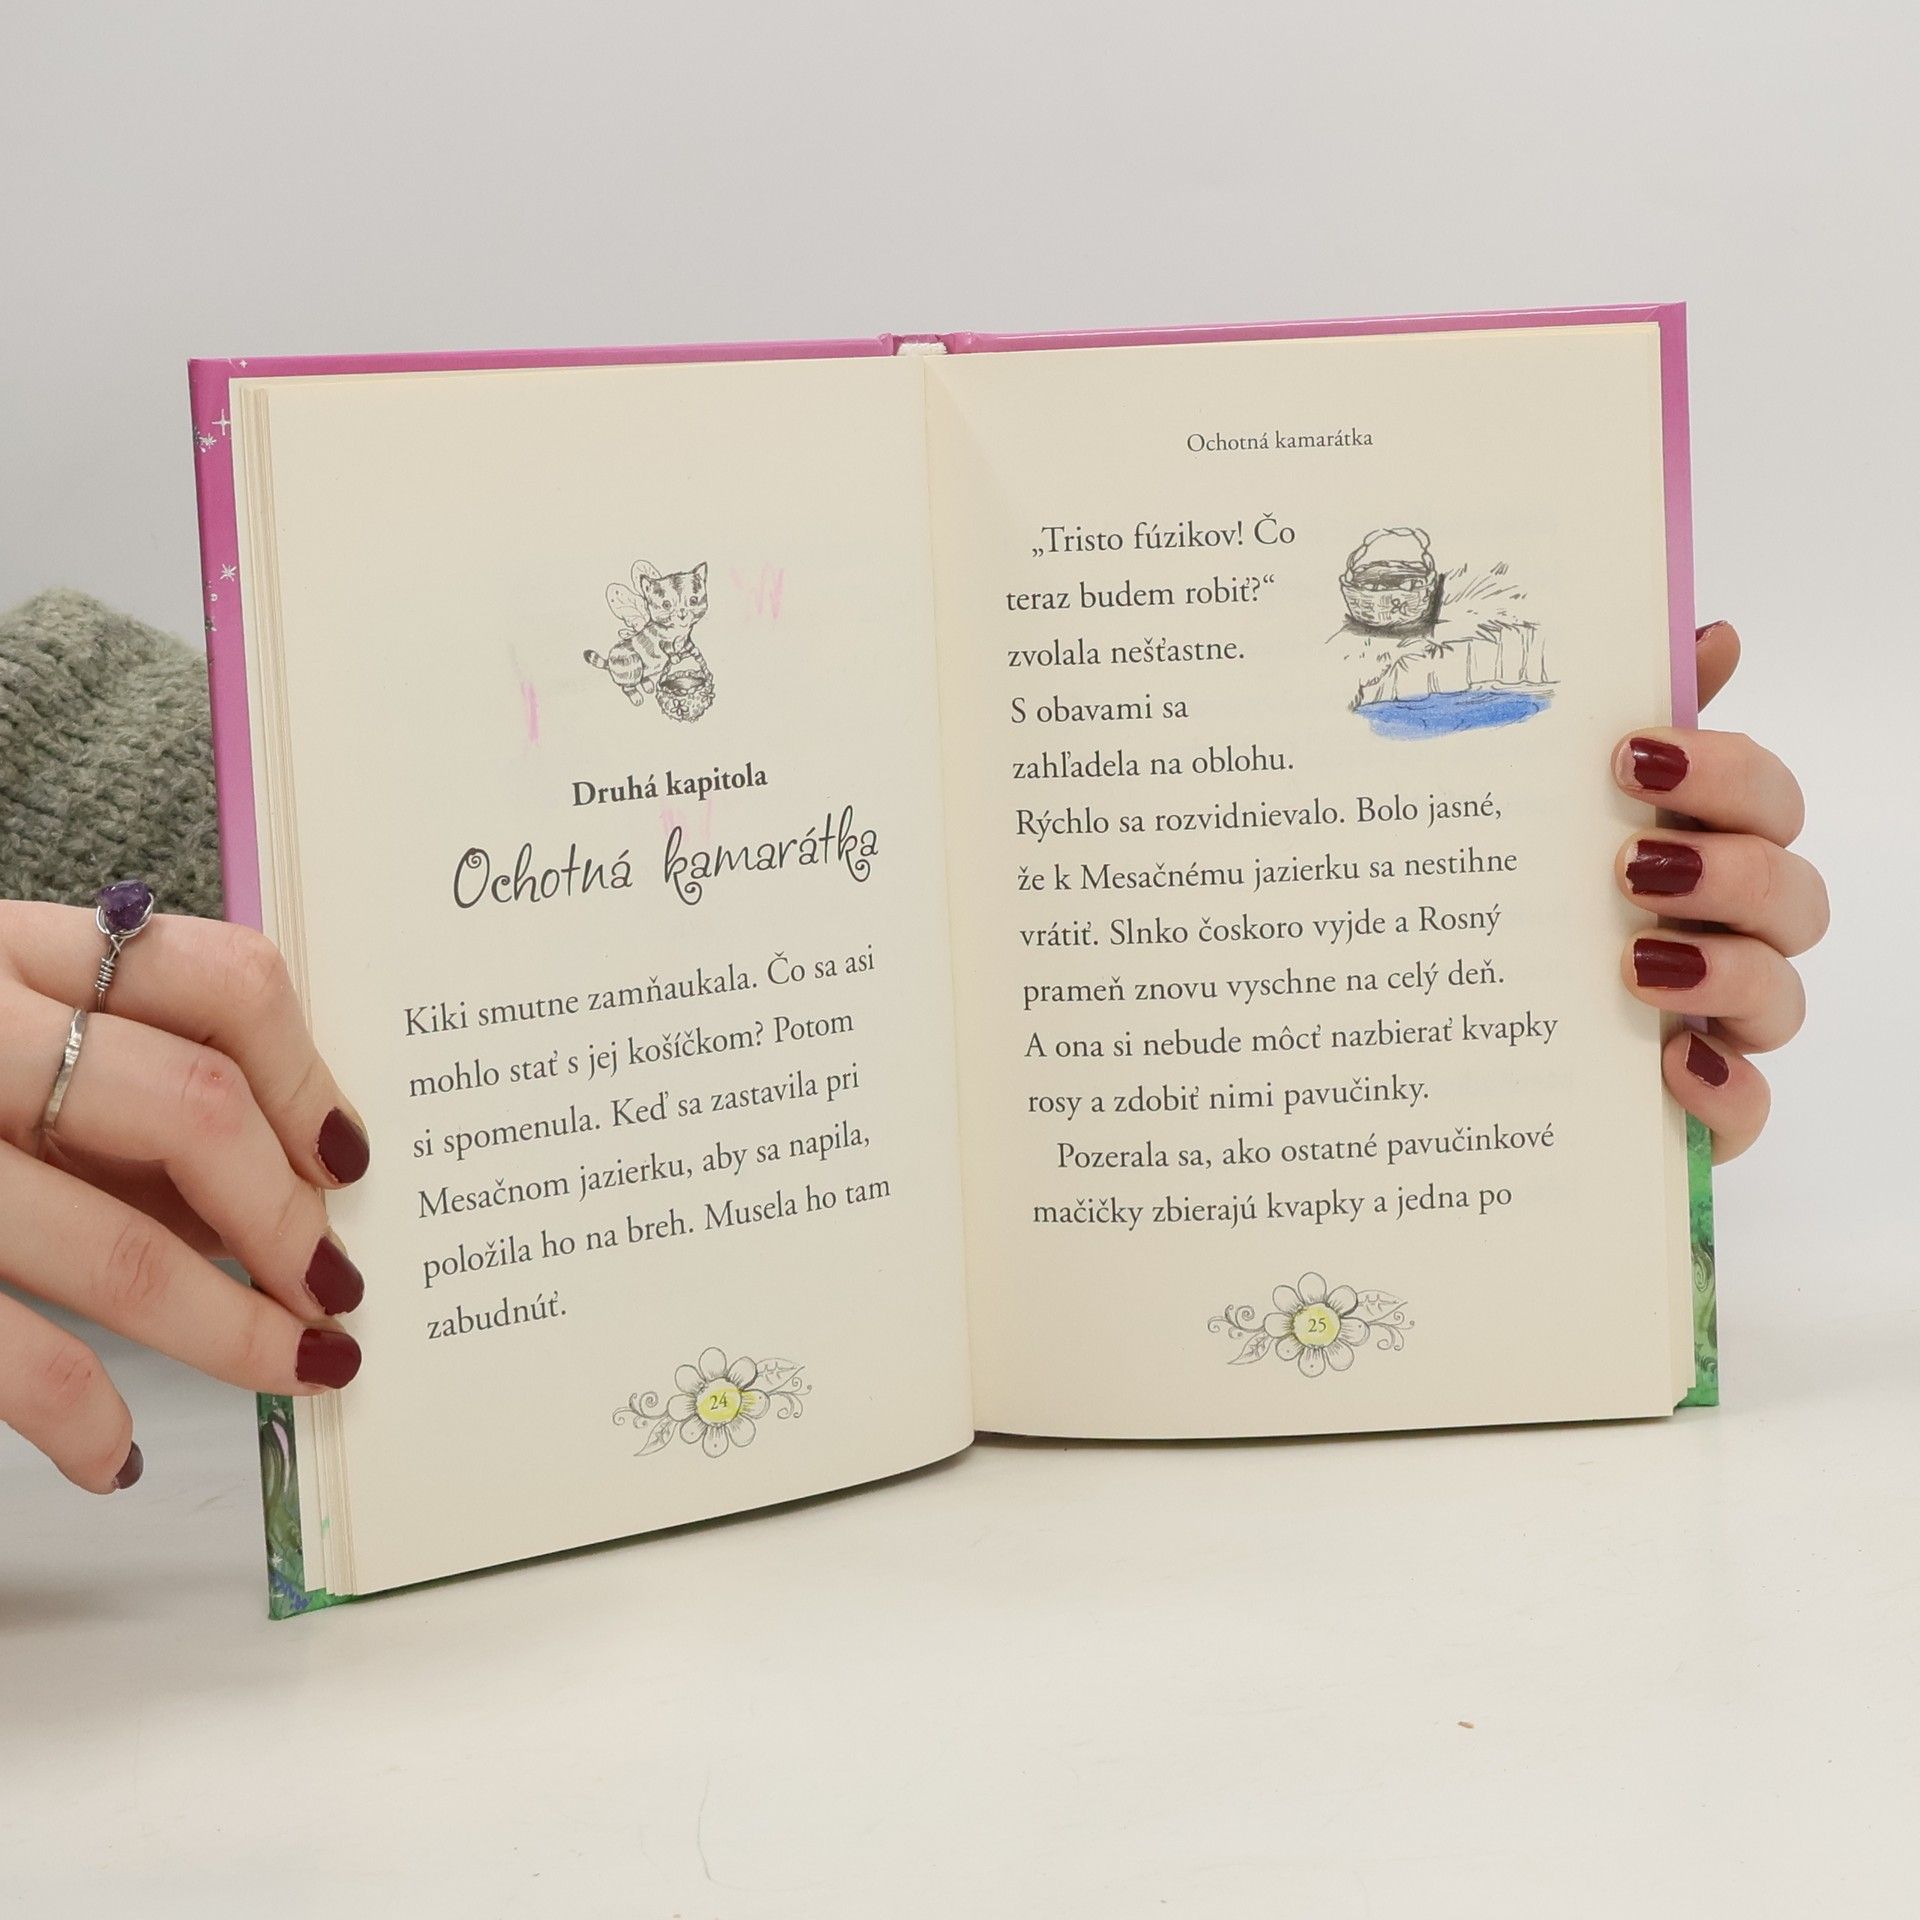 Druhá kapitola
Ochotná kamarátka
Kiki smutne zamňaukala. Čo sa asi
mohlo stať s jej košíčkom? Potom
si spomenula. Keď sa zastavila pri
Mesačnom jazierku, aby sa napila,
položila ho na breh. Musela ho tam
zabudnúť.
24
Ochotná kamarátka
„Tristo fúzikov! Čo
teraz budem robiť?“
zvolala nešťastne.
S obavami sa
zahľadela na oblohu.
Rýchlo sa rozvidnievalo. Bolo jasné,
že k Mesačnému jazierku sa nestihne
vrátiť. Slnko čoskoro vyjde a Rosný
prameň znovu vyschne na celý deň.
A ona si nebude môcť nazbierať kvapky
rosy a zdobiť nimi pavučinky.
Pozerala sa, ako ostatné pavučinkové
mačičky zbierajú kvapky a jedna po
25